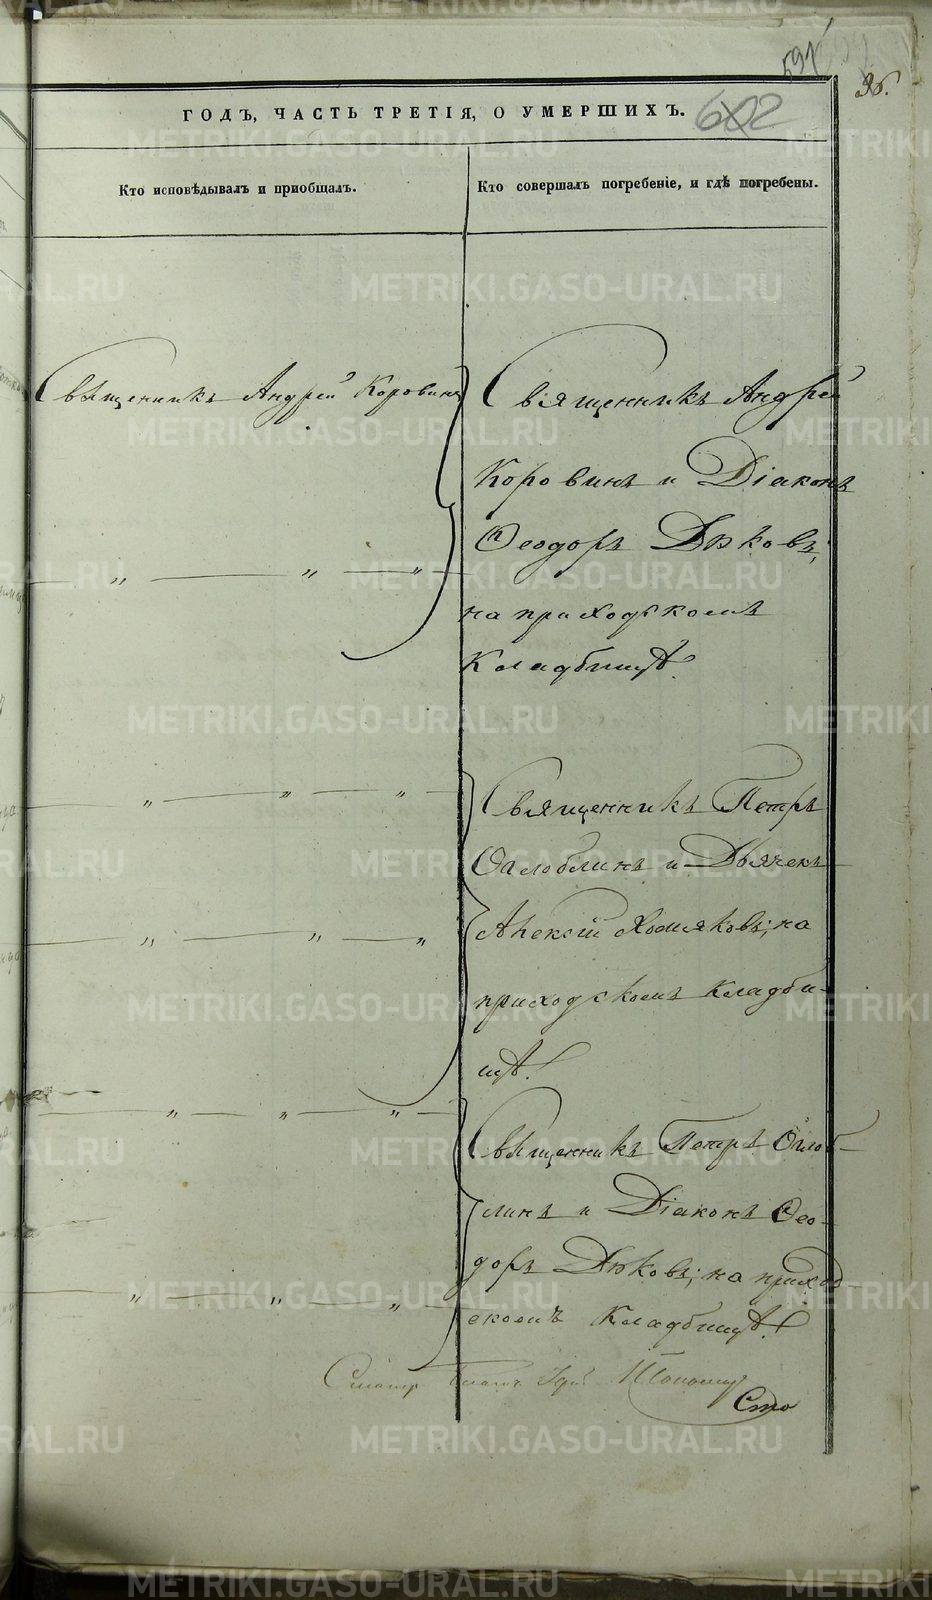 591
36.
ГОДЪ, ЧАСТЬ ТРЕТІЯ, О УМЕРШИХЪ.
602
Кто исповѣдывалъ и приобщалъ.
Кто совершалъ погребеніе, и гдѣ погребены.
Священникъ Андрей Коровинъ
Священникъ Андрей
Коровинъ и Діаконъ
Ѳеодоръ Дьковъ;
на приходскомъ
Кладбищѣ.
Священникъ Петръ
Оглоблинъ и Дьячекъ
Алексій Хомяковъ; на
приходскомъ Кладби-
щѣ.
Священникъ Петръ Оглоб-
линъ и Діаконъ Ѳео-
доръ Дьковъ; на приход
скомъ Кладбищѣ.
Сто
METRIKI.GASO-URAL.RU